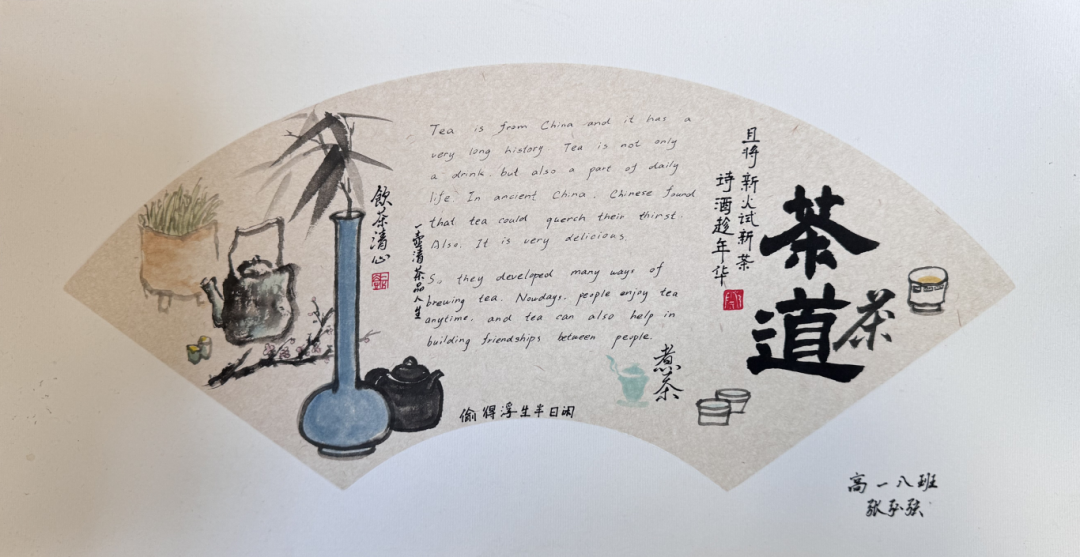 Tea is from China and it has a
very long history Tea is not only
a drink. but also a part of daily
life. In ancient China. Chinese found
that tea could querch their thirst.
Also. It is very delicious.
So they developed many ways of
brewing tea. Nowdays. people enjoy tea
anytime. and tea can also help in
building friendships between people.
且将新火试新茶
诗酒趁年华
茶道
茶
飲茶清心
一壶清茶品人生
煮茶
偷得浮生半日闲
高一八班
张